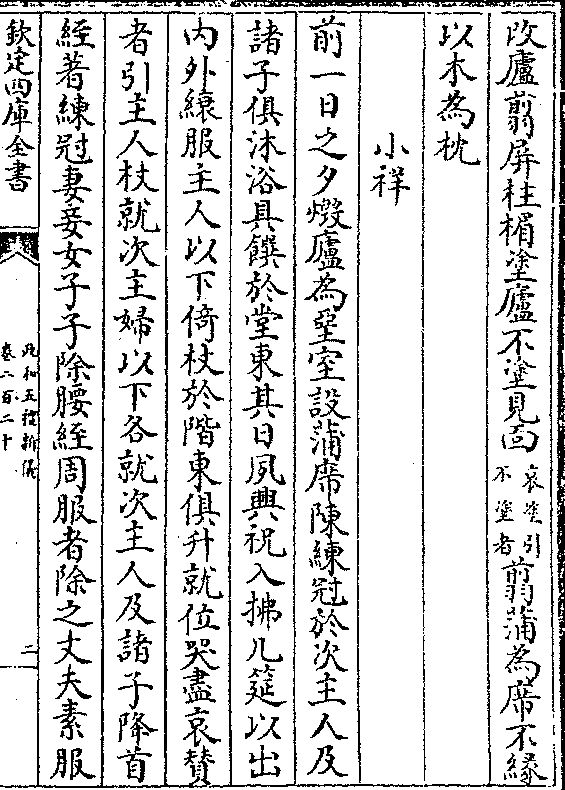 改廬翦屏柱楣塗廬不塗見面衰塗引不塗者翦蒲為席不縁
以木為枕
小祥
前一日之夕燬廬為堊室設蒲席陳練冠於次主人及
諸子俱沐浴具饌於堂東其日夙興祝入拂几筵以出
内外縗服主人以下倚杖於階東俱升就位哭盡哀賛
者引主人杖就次主婦以下各就次主人及諸子降首
絰著練冠妻妾女子子除腰絰周服者除之丈夫素服
欽定四庫全書
政和五禮新儀
卷二百二十
二